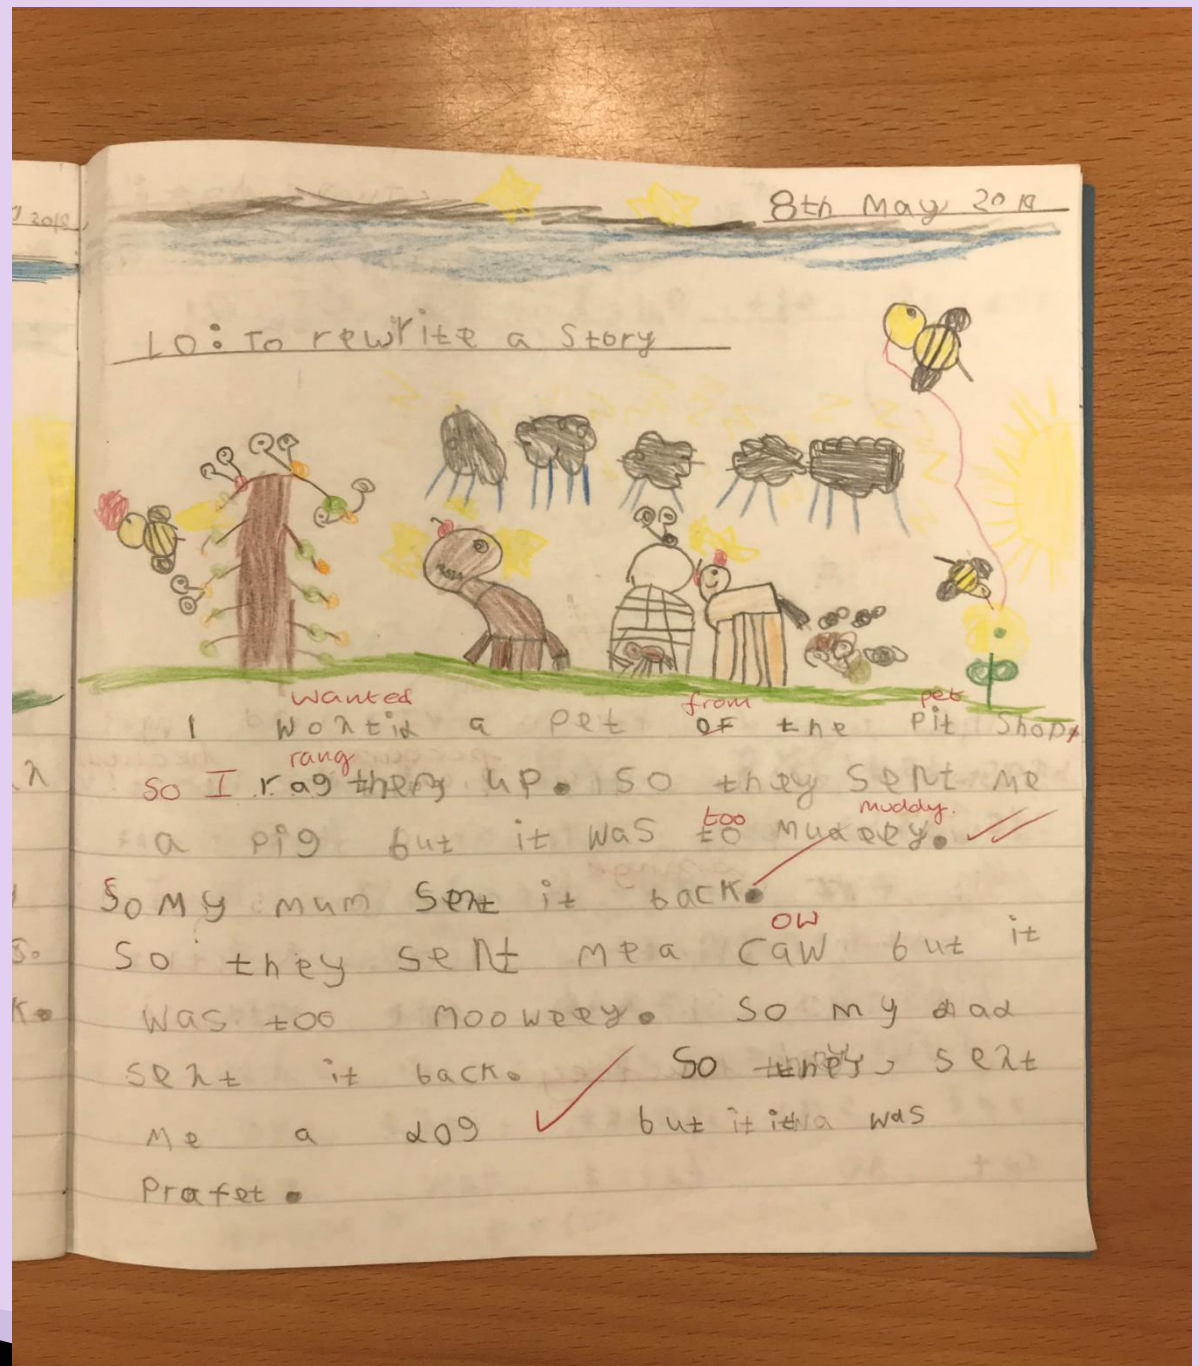 2018
8th May 2018
LO: To rewrite a Story
wanted from pet
I wontid a pet of the Pit Shop
rang
so I rag them up. So they sent me
too muddy.
a pig but it was to mudeey.
So my mum sent it back.
ow
So they sent me a caw but it
was too mooweey. So my dad
sent it back. So they sent
me a dog but it it wa was
Prafet.